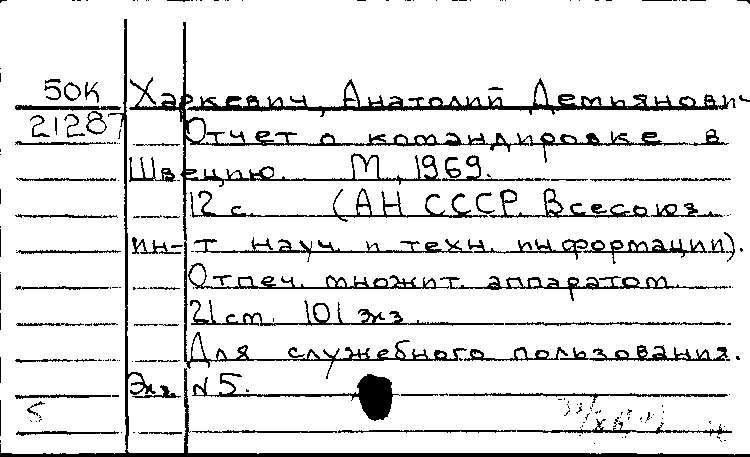 50К Харкевич, Анатолий Демьянович
21287 Отчет о командировке в
Швецию. М, 1969.
12 с. (АН СССР. Всесоюз.
ин-т науч. и техн. информации).
Отпеч. множит. аппаратом.
21 см. 101 экз.
Для служебного пользования.
Экз. №5.
5